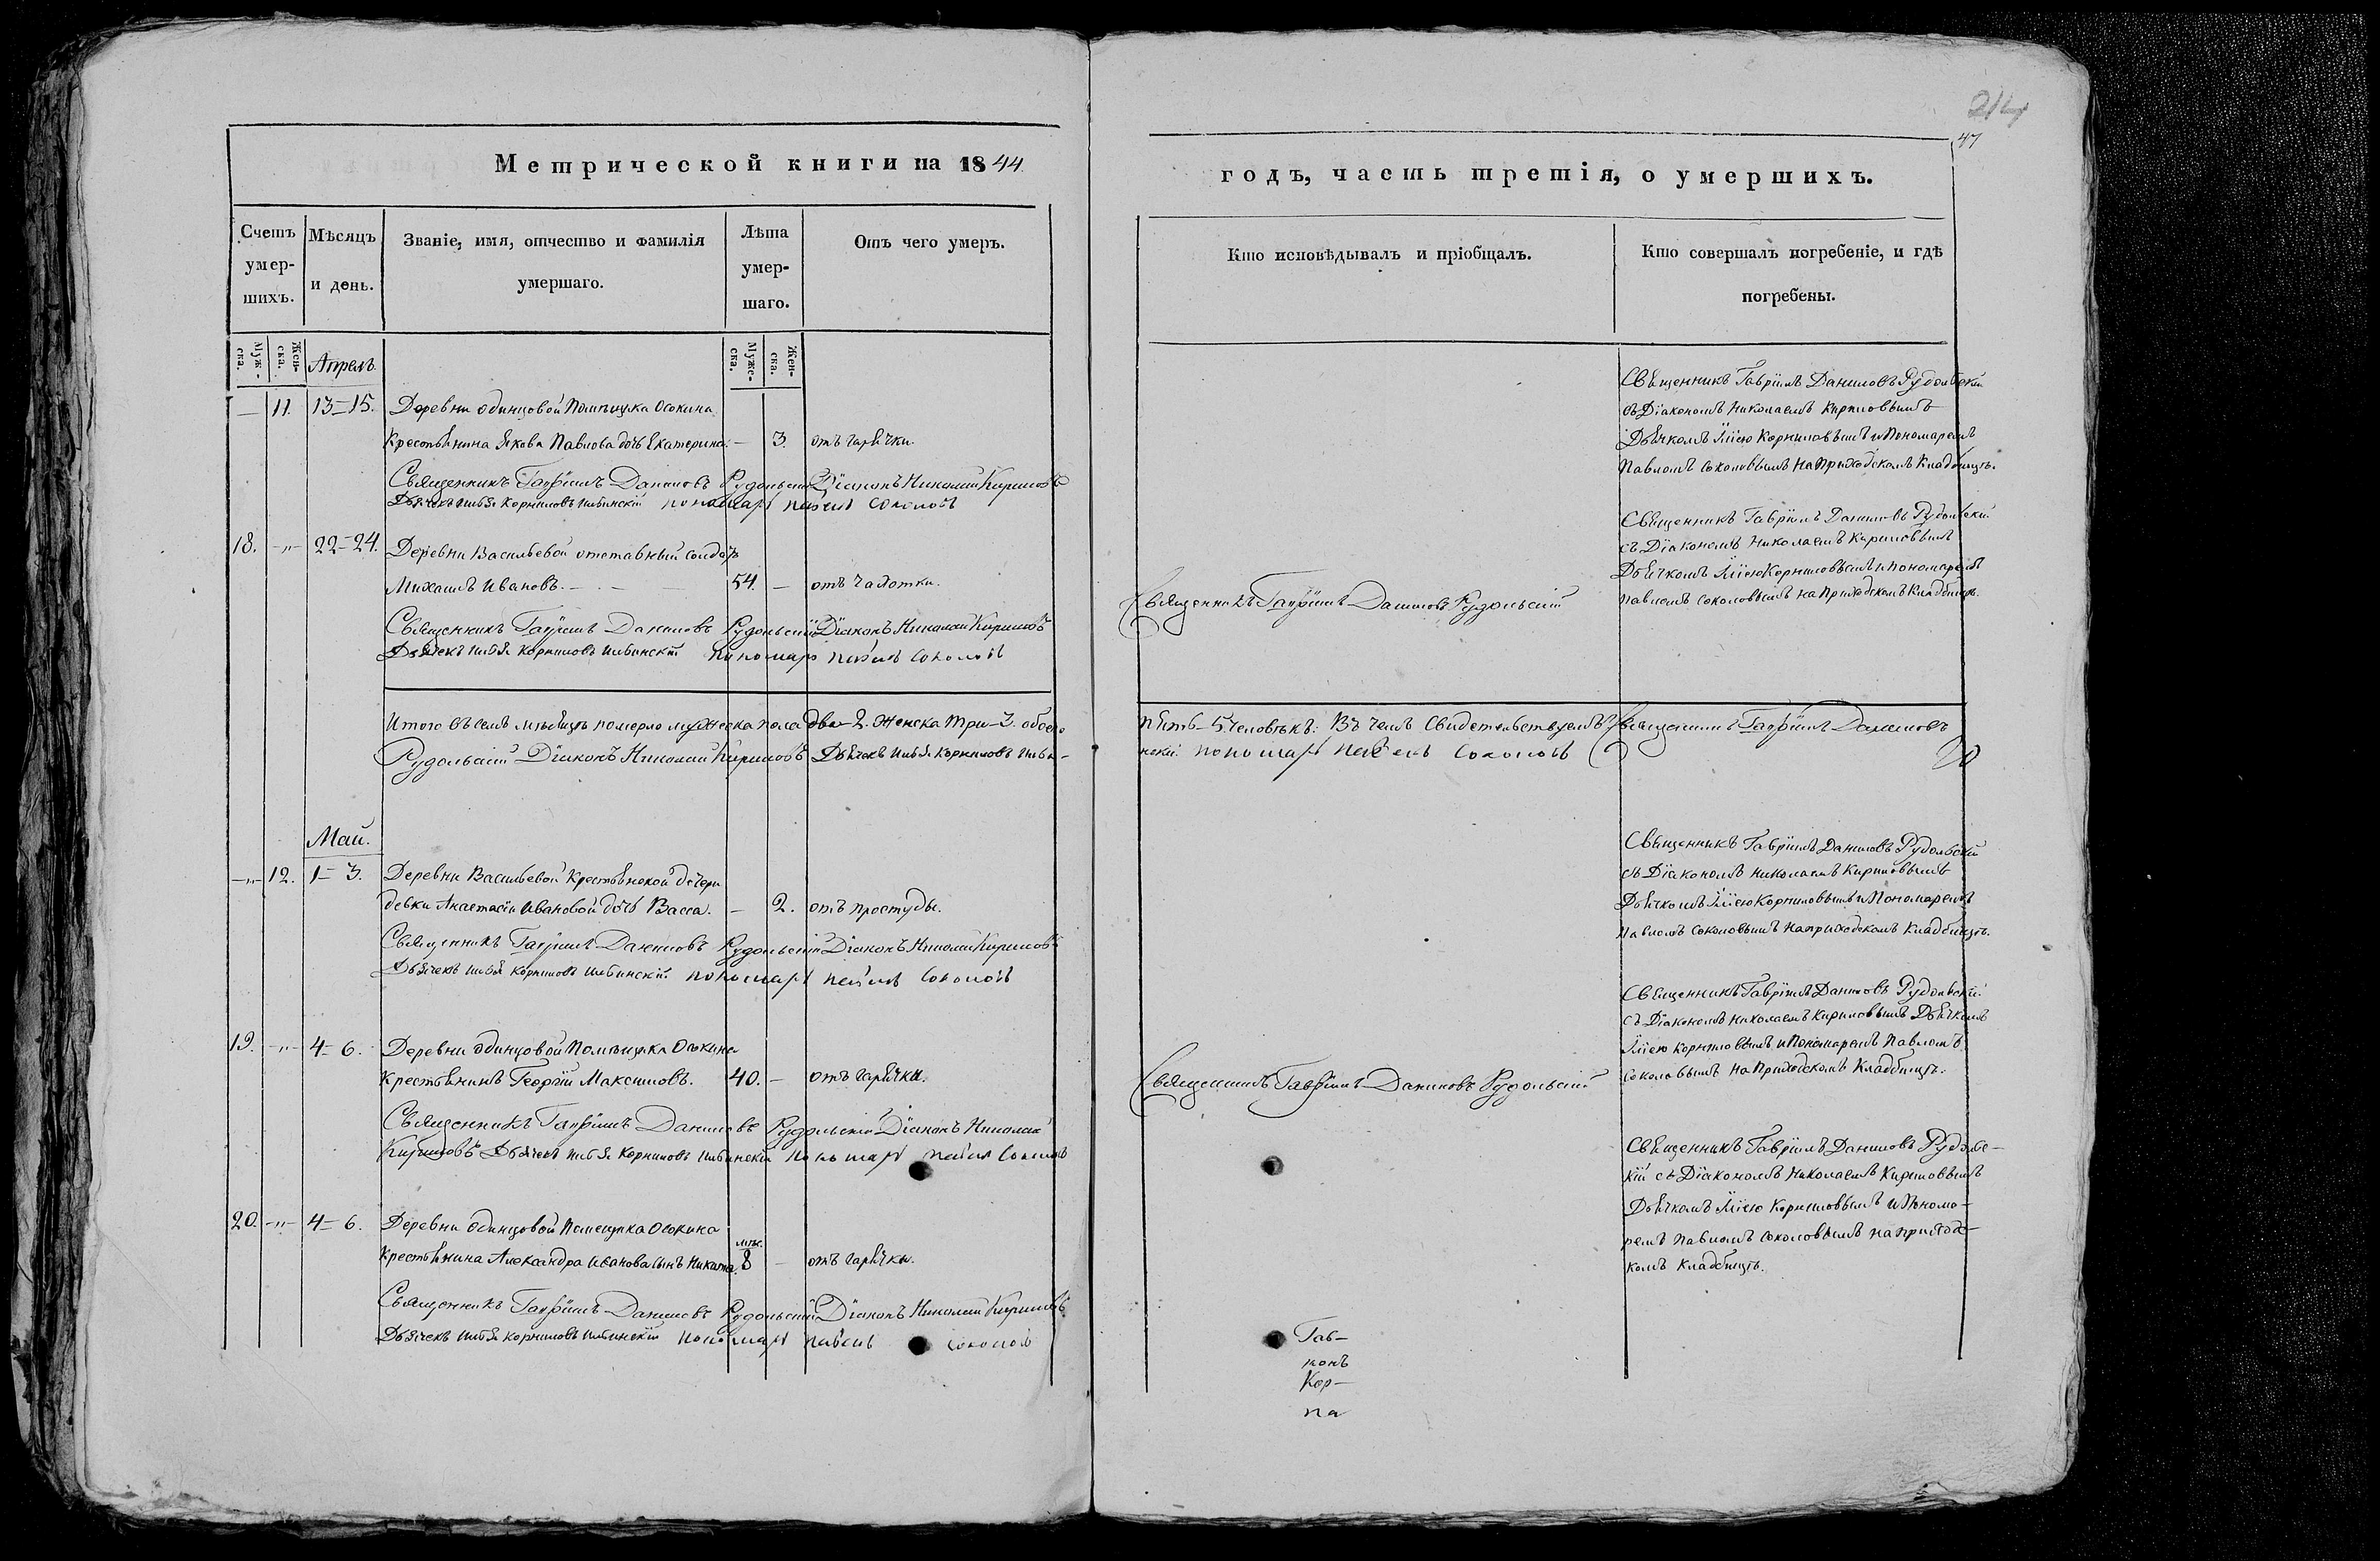 214
47
Метрической книги на 1844
годъ, часть третія, о умершихъ.
Счетъ умер-шихъ.
Мѣсяцъ и день.
Званіе, имя, отчество и фамилія умершаго.
Лѣта умер-шаго.
Отъ чего умеръ.
Кто исповѣдывалъ и пріобщалъ.
Кто совершалъ погребеніе, и гдѣ погребены.
Муж-ска.
Жен-ска.
Муже-ска.
Жен-ска.
Апрель.
— 11. 13-15. Деревни Одинцовой Помѣщика Осокина
Крестьянина Якова Павлова дочь Екатерина. — 3. отъ гарячки.
Священникъ Гавріилъ Даниловъ Рудольскій Діаконъ Николай Кириловъ
Дьячекъ Илья Корниловъ пономарь Павелъ Соколовъ
Священникъ Гавріилъ Даниловъ Рудольскій
съ Діакономъ Николаемъ Кириловымъ
Дьячкомъ Иліею Корниловымъ и Пономаремъ
Павломъ Соколовымъ на Приходскомъ Кладбищѣ.
18. -„- 22-24. Деревни Васильевой отставный солдатъ
Михаилъ Ивановъ. — 54. — отъ чахотки.
Священникъ Гавріилъ Даниловъ Рудольскій Діаконъ Николай Кириловъ
Дьячекъ Илья Корниловъ пономарь Павелъ Соколовъ
Священникъ Гавріилъ Даниловъ Рудольскій
Священникъ Гавріилъ Даниловъ Рудольскій
съ Діакономъ Николаемъ Кириловымъ
Дьячкомъ Иліею Корниловымъ и Пономаремъ
Павломъ Соколовымъ на Приходскомъ Кладбищѣ.
Итого въ семъ мѣсяцѣ померло мужеска пола два-2. женска три-3. обоего
пять-5. человѣкъ. Въ чемъ свидетельствуемъ Священникъ Гавріилъ Даниловъ
Рудольскій Діаконъ Николай Кириловъ Дьячекъ Илья Корниловъ
пономарь Павелъ Соколовъ
Май.
-„- 12. 1-3. Деревни Васильевой Крестьянской дочери
девки Анастасіи Ивановой дочь Васса. — 2. отъ простуды.
Священникъ Гавріилъ Даниловъ Рудольскій Діаконъ Николай Кириловъ
Дьячекъ Илья Корниловъ пономарь Павелъ Соколовъ
Священникъ Гавріилъ Даниловъ Рудольскій
съ Діакономъ Николаемъ Кириловымъ
Дьячкомъ Иліею Корниловымъ и Пономаремъ
Павломъ Соколовымъ на приходскомъ Кладбищѣ.
19. -„- 4-6. Деревни Одинцовой Помѣщика Осокина
Крестьянинъ Георгій Максимовъ. 40. — отъ гарячки.
Священникъ Гавріилъ Даниловъ Рудольскій Діаконъ Николай
Кириловъ Дьячекъ Илья Корниловъ пономарь Павелъ Соколовъ
Священникъ Гавріилъ Даниловъ Рудольскій
Священникъ Гавріилъ Даниловъ Рудольскій
съ Діакономъ Николаемъ Кириловымъ Дьячкомъ
Иліею Корниловымъ и Пономаремъ Павломъ
Соколовымъ на Приходскомъ Кладбищѣ.
20. -„- 4-6. Деревни Одинцовой Помещика Осокина
Крестьянина Александра Иванова сынъ Никита. мѣс. 8 — отъ гарячки.
Священникъ Гавріилъ Даниловъ Рудольскій Діаконъ Николай Кириловъ
Дьячекъ Илья Корниловъ пономарь Павелъ Соколовъ
Священникъ Гавріилъ Даниловъ Рудольс-
кій съ Діакономъ Николаемъ Кириловымъ
Дьячкомъ Иліею Корниловымъ и Понома-
ремъ Павломъ Соколовымъ на приходс-
комъ Кладбищѣ.
Гав-
конъ
Кор-
па